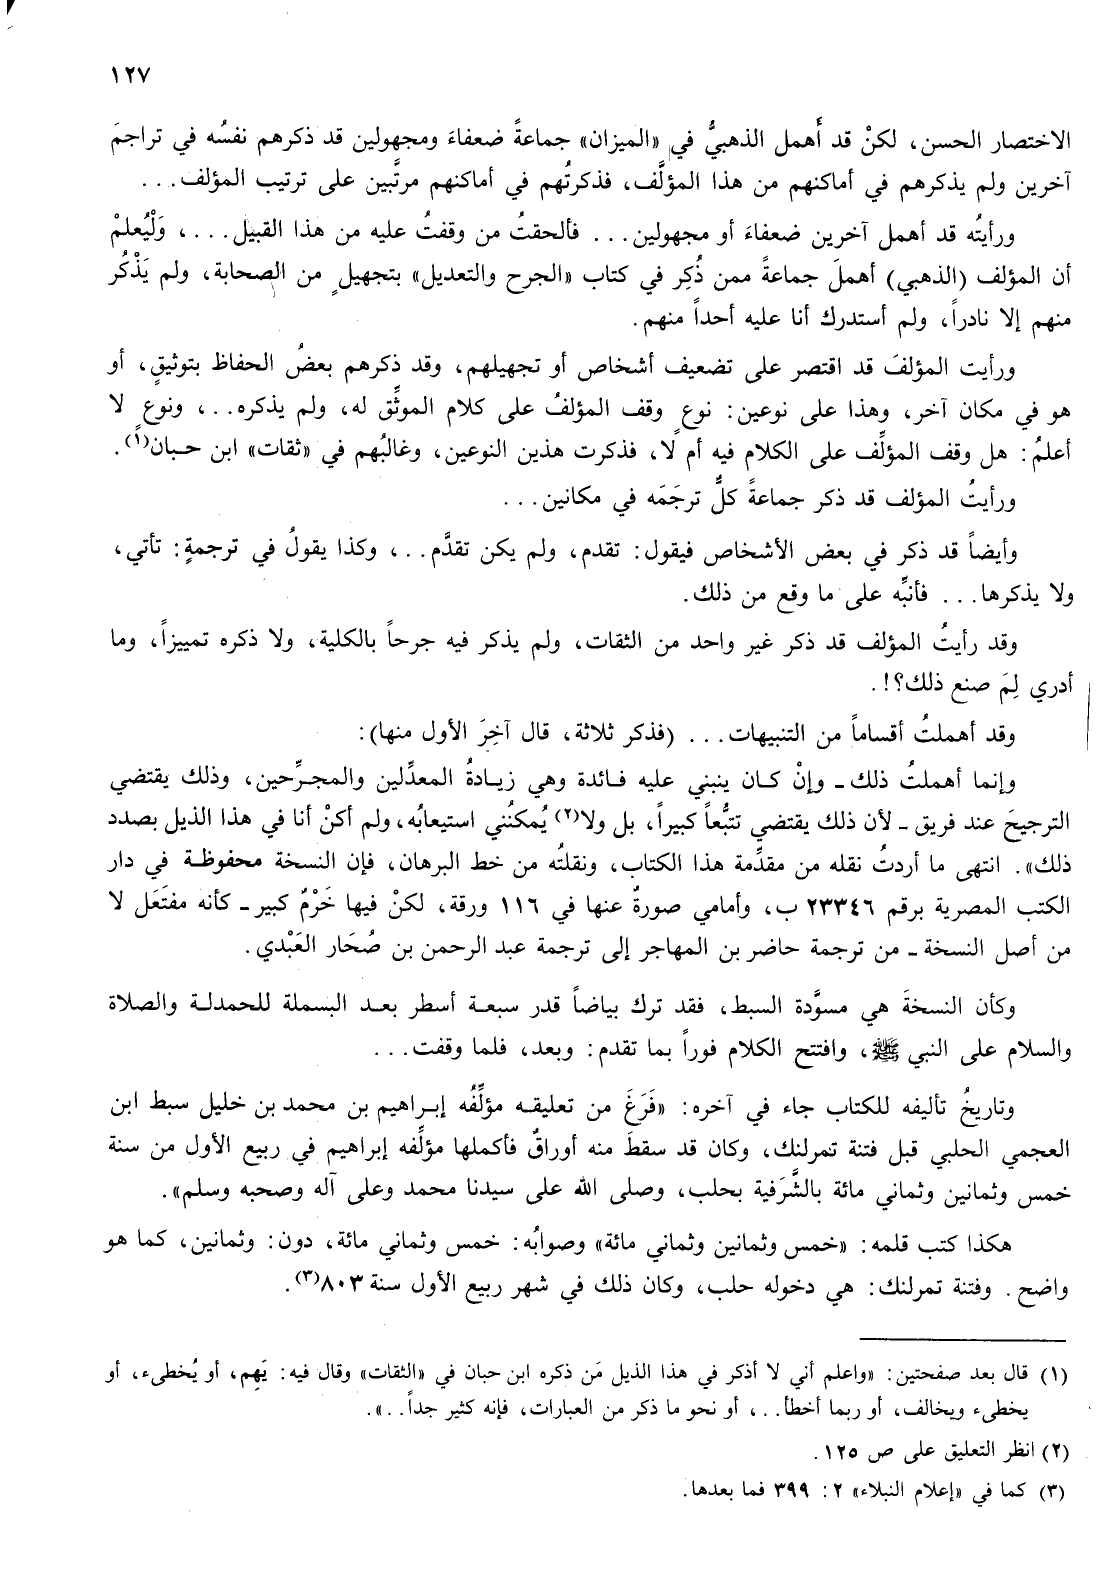 ١٢٧
الاختصار الحسن، لكنْ قد أَهمل الذهبيُّ في «الميزان» جماعةً ضعفاءَ ومجهولين قد ذكرهم نفسُه في تراجمَ
آخرين ولم يذكرهم في أماكنهم من هذا المؤلَّف، فذكرتُهم في أماكنهم مرتَّبين على ترتيب المؤلف...
ورأيتُه قد أهمل آخرين ضعفاءَ أو مجهولين... فألحقتُ من وقفتُ عليه من هذا القبيل...، وَلْيُعلمْ
أن المؤلف (الذهبي) أهملَ جماعةً ممن ذُكِر في كتاب «الجرح والتعديل» بتجهيلٍ من الصحابة، ولم يَذْكُر
منهم إلا نادراً، ولم أستدرك أنا عليه أحداً منهم.
ورأيت المؤلفَ قد اقتصر على تضعيف أشخاص أو تجهيلهم، وقد ذكرهم بعضُ الحفاظ بتوثيقٍ، أو
هو في مكان آخر، وهذا على نوعين: نوعٍ وقف المؤلفُ على كلام الموثِّق له، ولم يذكره..، ونوعٍ لا
أعلمُ: هل وقف المؤلِّف على الكلام فيه أم لا، فذكرت هذين النوعين، وغالبُهم في «ثقات» ابن حبان(١).
ورأيتُ المؤلف قد ذكر جماعةً كلٌّ ترجَمَه في مكانين...
وأيضاً قد ذكر في بعض الأشخاص فيقول: تقدم، ولم يكن تقدَّم..، وكذا يقولُ في ترجمةٍ: تأتي،
ولا يذكرها... فأنبِّه على ما وقع من ذلك.
وقد رأيتُ المؤلف قد ذكر غير واحد من الثقات، ولم يذكر فيه جرحاً بالكلية، ولا ذكره تمييزاً، وما
أدري لِمَ صنع ذلك؟!.
وقد أهملتُ أقساماً من التنبيهات... (فذكر ثلاثة، قال آخِرَ الأول منها):
وإنما أهملتُ ذلك ـ وإنْ كان ينبني عليه فائدة وهي زيادةُ المعدِّلين والمجرِّحين، وذلك يقتضي
الترجيحَ عند فريق ـ لأن ذلك يقتضي تتبُّعاً كبيراً، بل ولا(٢) يُمكنُني استيعابُه، ولم أكنْ أنا في هذا الذيل بصدد
ذلك». انتهى ما أردتُ نقله من مقدِّمة هذا الكتاب، ونقلتُه من خط البرهان، فإن النسخة محفوظة في دار
الكتب المصرية برقم ٢٣٣٤٦ ب، وأمامي صورةٌ عنها في ١١٦ ورقة، لكنْ فيها خَرْمٌ كبير ـ كأنه مفتَعَل لا
من أصل النسخة ـ من ترجمة حاضر بن المهاجر إلى ترجمة عبد الرحمن بن صُحَار العَبْدي.
وكأن النسخةَ هي مسوَّدة السبط، فقد ترك بياضاً قدر سبعة أسطر بعد البسملة للحمدلة والصلاة
والسلام على النبي ﷺ، وافتتح الكلام فوراً بما تقدم: وبعد، فلما وقفت...
وتاريخُ تأليفه للكتاب جاء في آخره: «فَرَغَ من تعليقه مؤلِّفُه إبراهيم بن محمد بن خليل سبط ابن
العجمي الحلبي قبل فتنة تمرلنك، وكان قد سقطَ منه أوراقٌ فأكملها مؤلِّفه إبراهيم في ربيع الأول من سنة
خمس وثمانين وثماني مائة بالشَّرَفية بحلب، وصلى الله على سيدنا محمد وعلى آله وصحبه وسلم».
هكذا كتب قلمه: «خمس وثمانين وثماني مائة» وصوابُه: خمس وثماني مائة، دون: وثمانين، كما هو
واضح. وفتنة تمرلنك: هي دخوله حلب، وكان ذلك في شهر ربيع الأول سنة ٨٠٣(٣).
(١) قال بعد صفحتين: «واعلم أني لا أذكر في هذا الذيل مَن ذكره ابن حبان في «الثقات» وقال فيه: يَهِم، أو يُخطىء، أو
يخطىء ويخالف، أو ربما أخطأ..، أو نحو ما ذكر من العبارات، فإنه كثير جداً..».
(٢) انظر التعليق على ص ١٢٥.
(٣) كما في «إعلام النبلاء» ٢: ٣٩٩ فما بعدها.